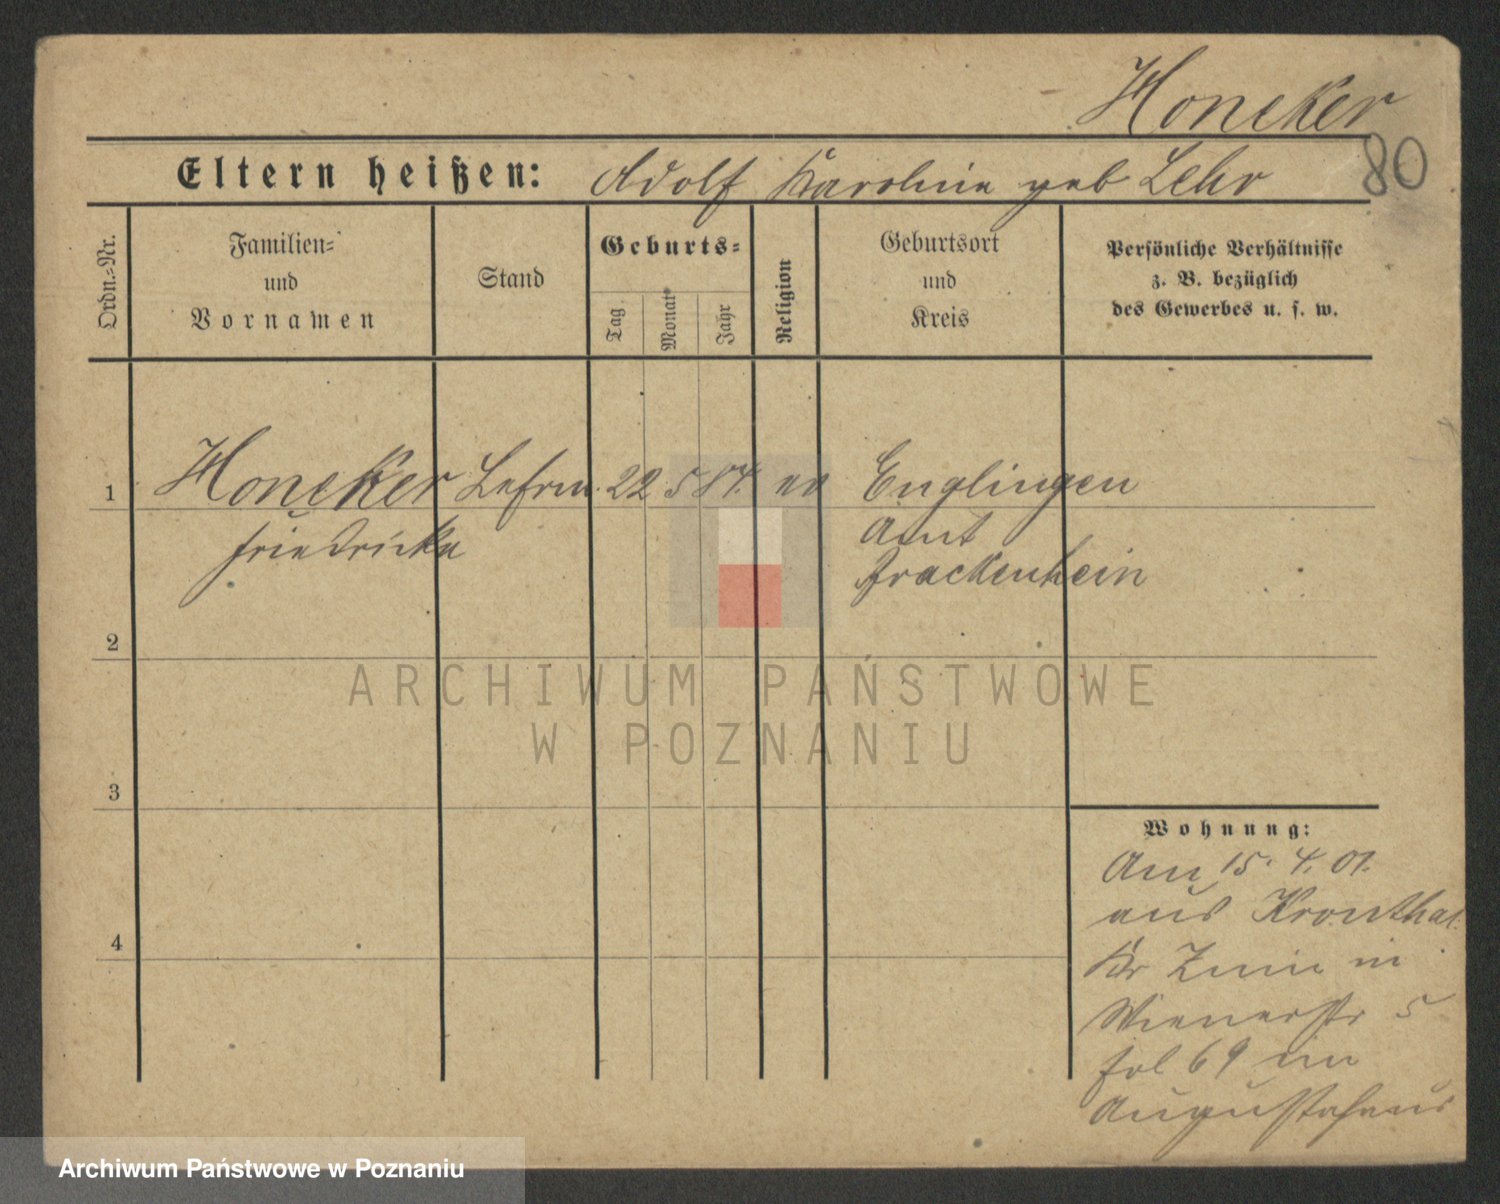 Honeker
80
Eltern heißen: Adolf Karoline geb Lehr
Ordn.=Nr.
Familien=
und
Vornamen
Stand
Geburts=
Tag
Monat
Jahr
Religion
Geburtsort
und
Kreis
Persönliche Verhältnisse
z. B. bezüglich
des Gewerbes u. s. w.
1 Honeker 22 5 84. ev Englingen
Friedricke Amt
Brackenhein
2
3
4
Wohnung:
Am 15. 4. 01.
aus Kronthal
Kr Znin in
Wienerstr 5
fol 69 im
Augustahaus
ARCHIWUM PAŃSTWOWE
W POZNANIU
Archiwum Państwowe w Poznaniu